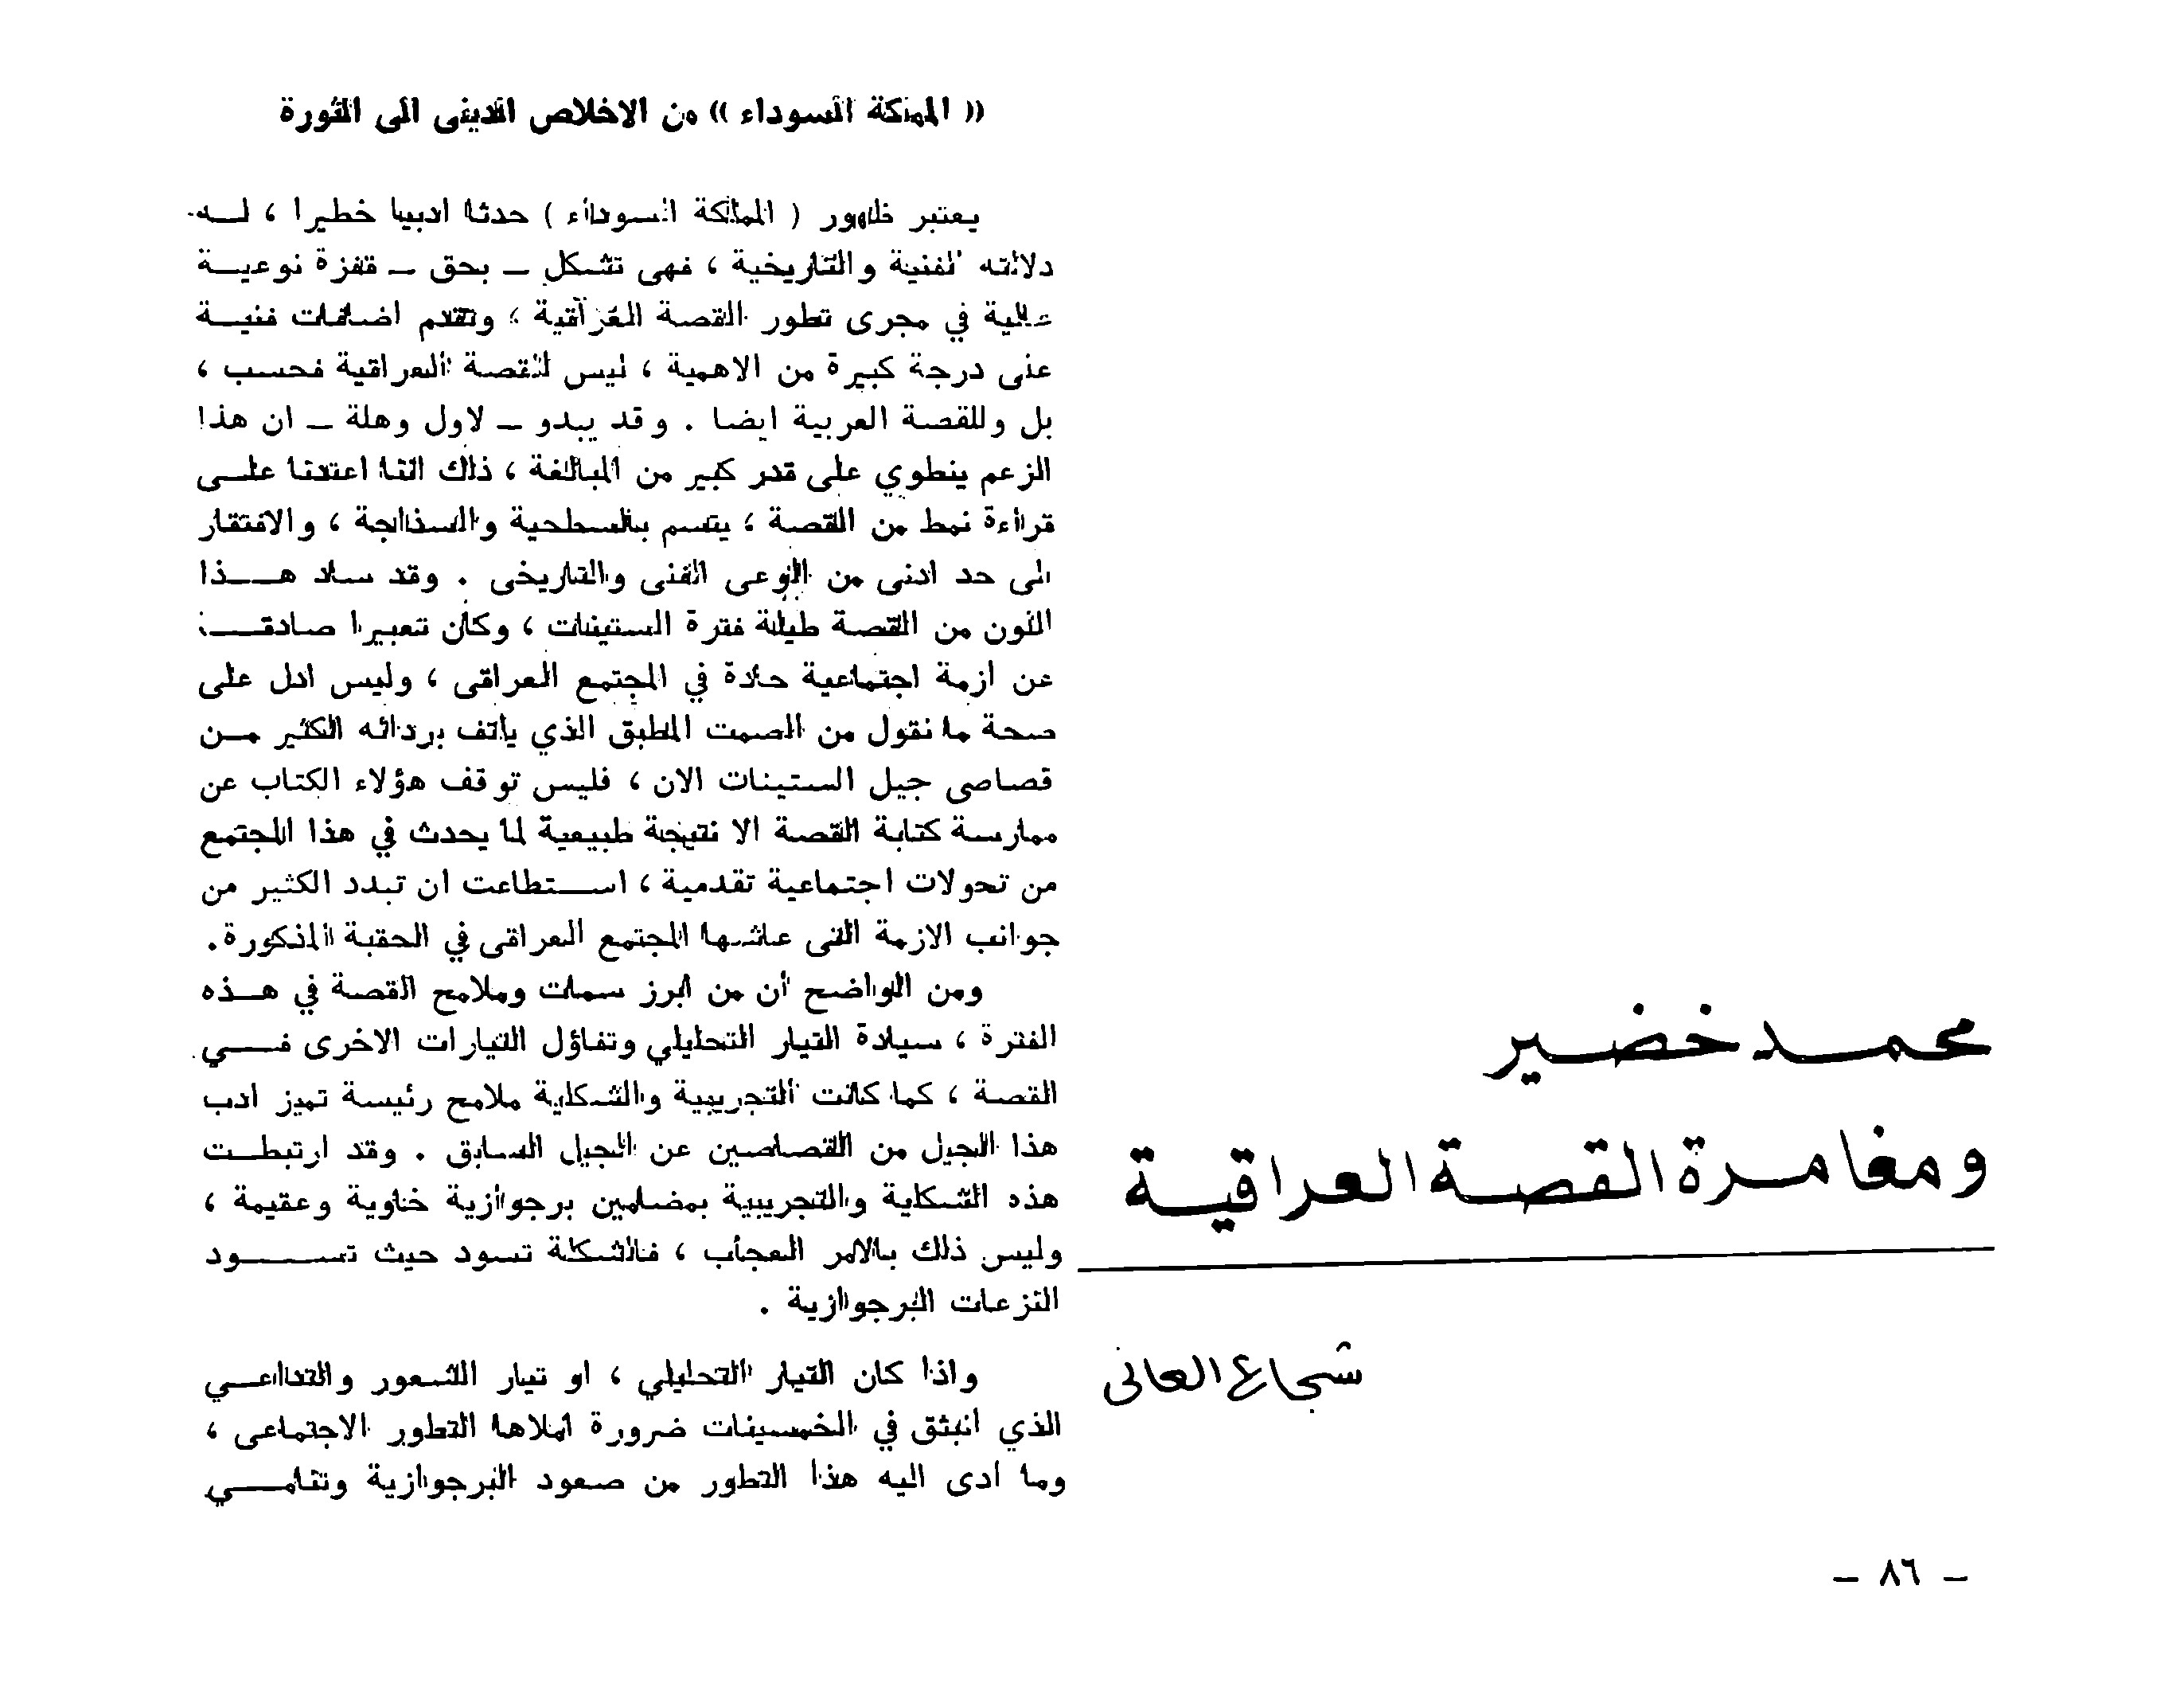 محمد خضير
ومغامرة القصة العراقية
شجاع العانى
« المملكة السوداء » من الاخلاص الدينى الى الثورة
يعتبر ظهور ( المملكة السوداء ) حدثا ادبيا خطيرا ، له
دلالته الفنية والتاريخية ، فهى تشكل – بحق – قفزة نوعية
عالية في مجرى تطور القصة العراقية ، وتقدم اضافات فنية
على درجة كبيرة من الاهمية ، ليس للقصة العراقية فحسب ،
بل وللقصة العربية ايضا . وقد يبدو – لاول وهلة – ان هذا
الزعم ينطوي على قدر كبير من المبالغة ، ذلك اننا اعتدنا على
قراءة نمط من القصة ، يتسم بالسطحية والسذاجة ، والافتقار
الى حد ادنى من الوعى الفنى والتاريخى . وقد ساد هذا
اللون من القصة طيلة فترة الستينات ، وكان تعبيرا صادقا
عن ازمة اجتماعية حادة في المجتمع العراقى ، وليس ادل على
صحة ما نقول من الصمت المطبق الذي يلتف بردائه الكثير من
قصاصى جيل الستينات الان ، فليس توقف هؤلاء الكتاب عن
ممارسة كتابة القصة الا نتيجة طبيعية لما يحدث في هذا المجتمع
من تحولات اجتماعية تقدمية ، استطاعت ان تبدد الكثير من
جوانب الازمة التى عاشها المجتمع العراقى في الحقبة المذكورة.
ومن الواضح أن من ابرز سمات وملامح القصة في هذه
الفترة ، سيادة التيار التحليلي وتفاؤل التيارات الاخرى في
القصة ، كما كانت التجريبية والشكلية ملامح رئيسة تميز ادب
هذا الجيل من القصاصين عن الجيل السابق . وقد ارتبطت
هذه الشكلية والتجريبية بمضامين برجوازية خاوية وعقيمة ،
وليس ذلك بالامر العجاب ، فالشكلة تسود حيث تسود
النزعات البرجوازية .
واذا كان التيار التحليلي ، او تيار الشعور والتداعي
الذي انبثق في الخمسينات ضرورة املاها التطور الاجتماعى ،
وما ادى اليه هذا التطور من صعود البرجوازية وتنامي
– ٨٦ –